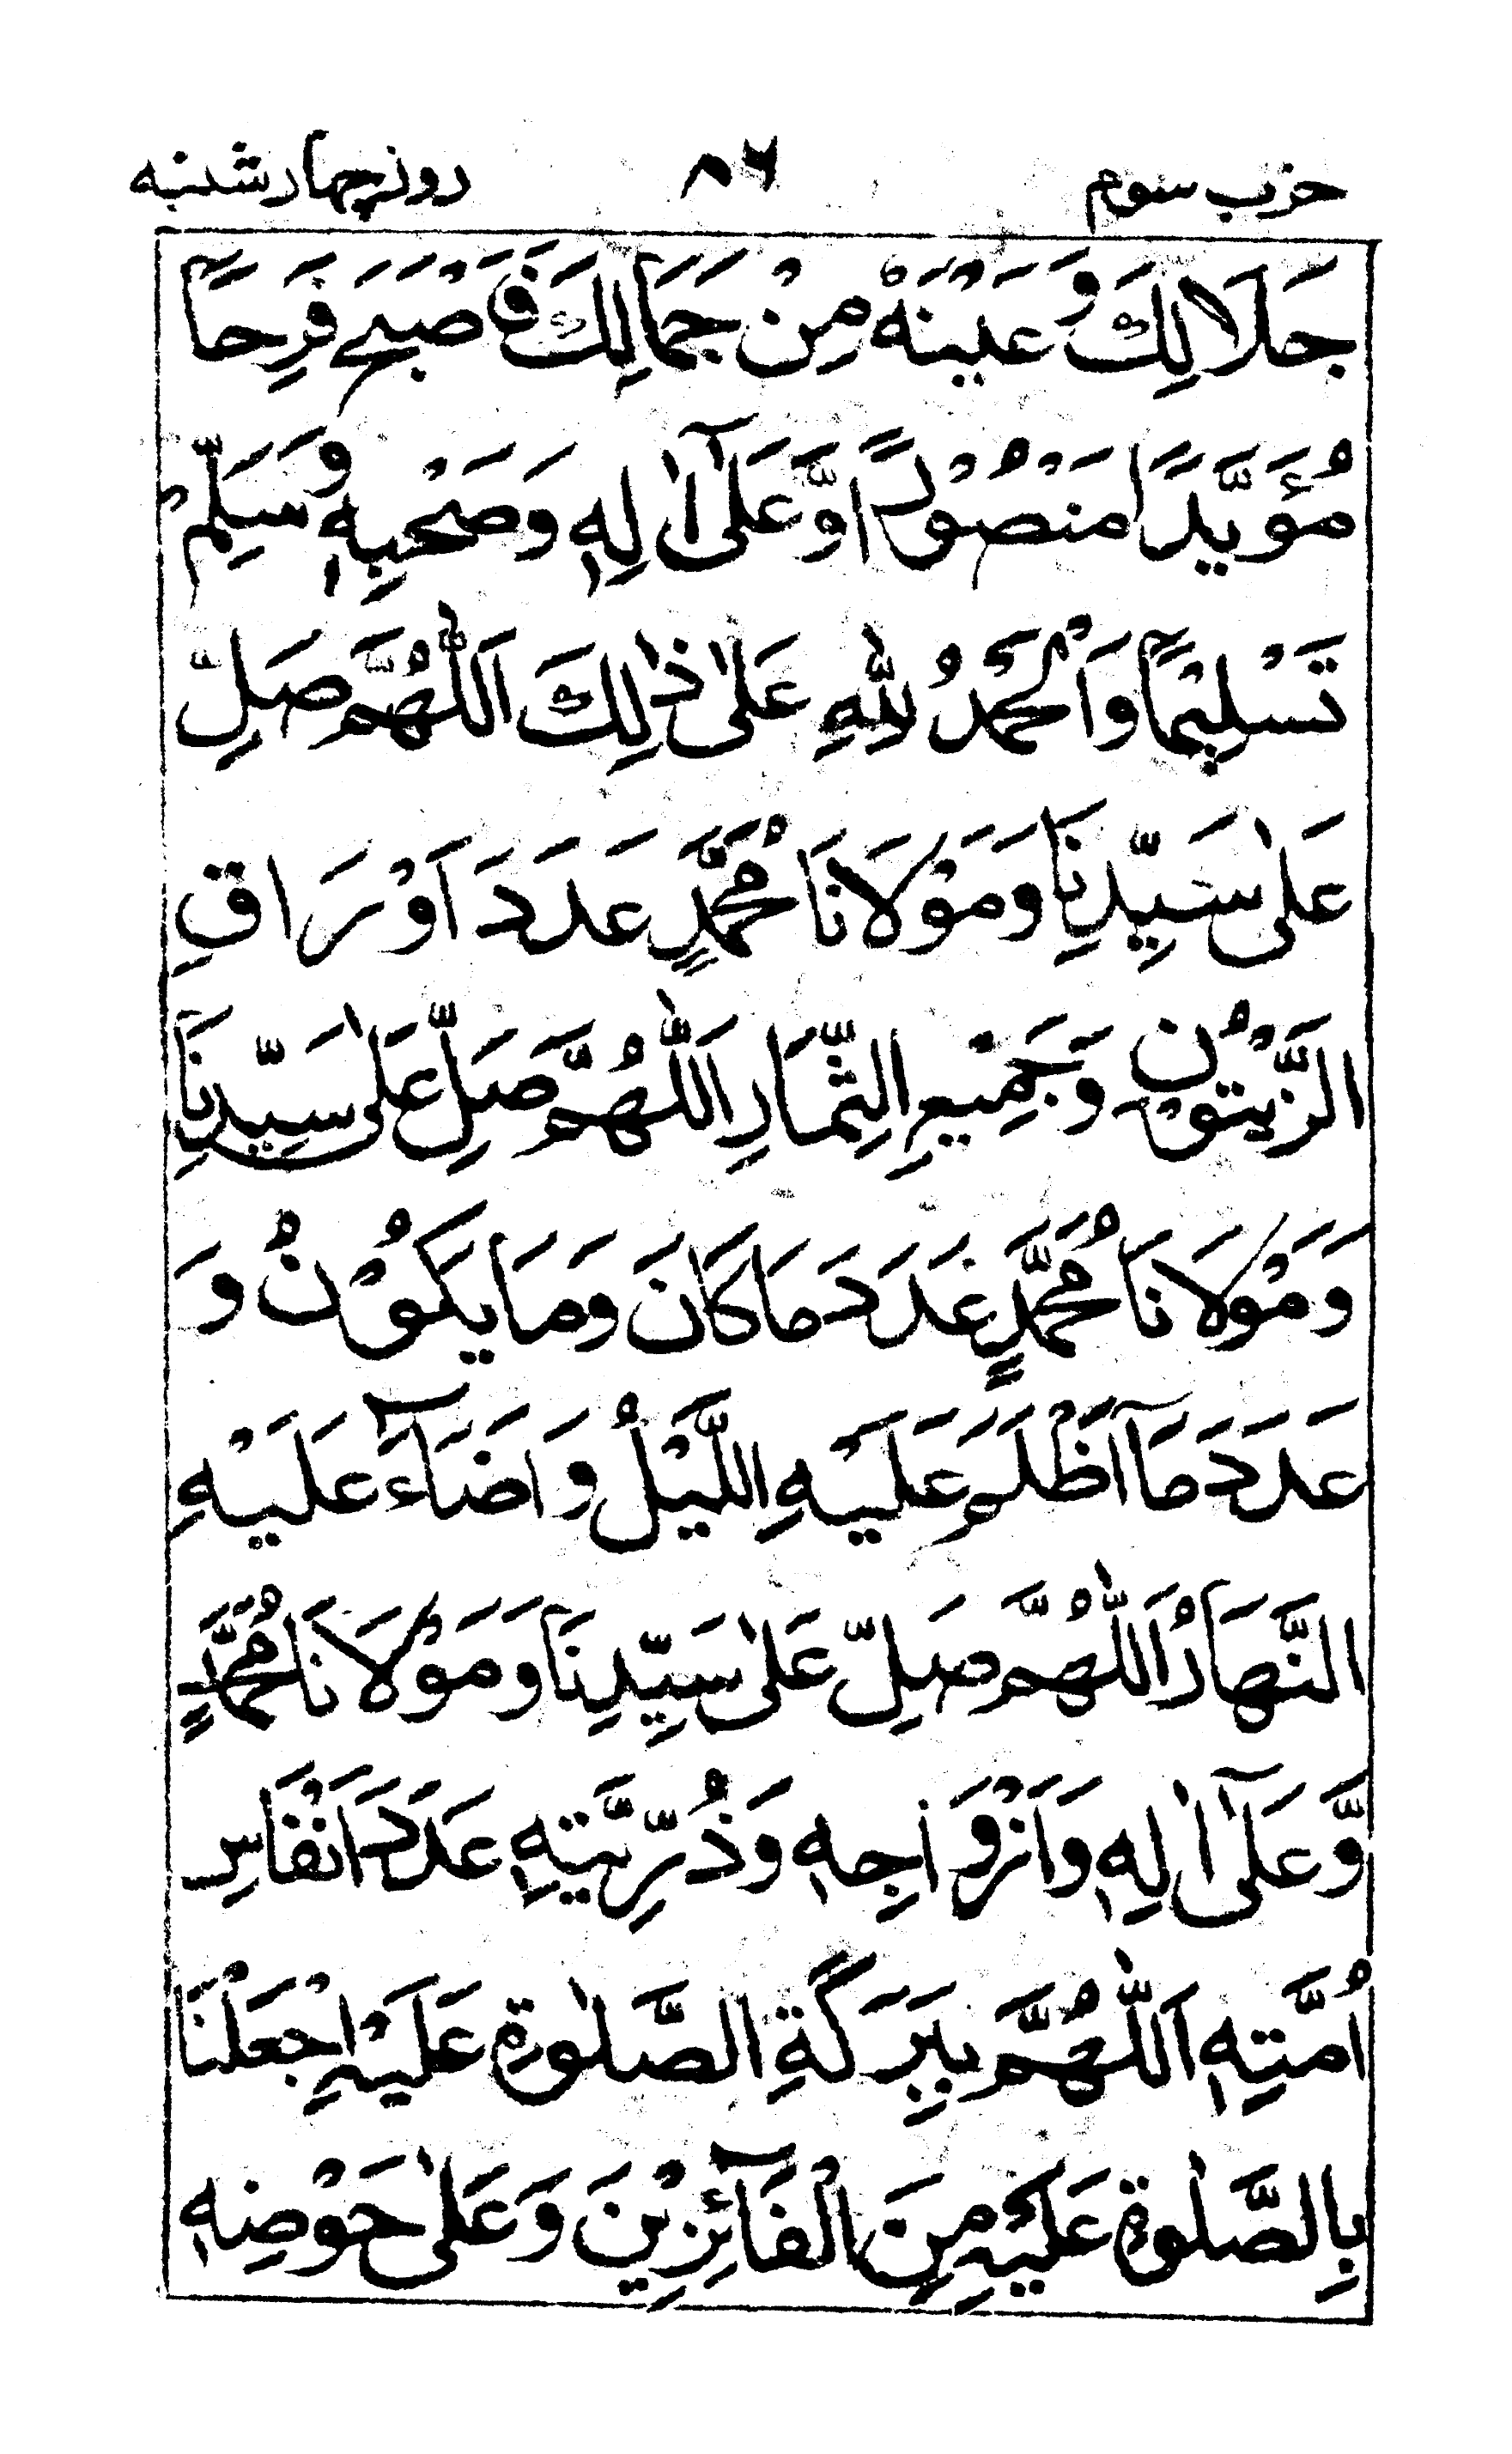 حزب سوم ۸۶ روز چهار شنبه
جَلَالِكَ وَعَيْنَهٗ مِنْ جَمَالِكَ فَاَصْبَحَ فَرِحًا
مُؤَيَّدًا مَنْصُوْرًا وَّعَلٰٓى اٰلِهٖ وَصَحْبِهٖ وَسَلِّمْ
تَسْلِيْمًا وَالْحَمْدُ لِلّٰهِ عَلٰى ذٰلِكَ اَللّٰهُمَّ صَلِّ
عَلٰى سَيِّدِنَا وَمَوْلَانَا مُحَمَّدٍ عَدَدَ اَوْرَاقِ
الزَّيْتُوْنِ وَجَمِيْعِ الثِّمَارِ اَللّٰهُمَّ صَلِّ عَلٰى سَيِّدِنَا
وَمَوْلَانَا مُحَمَّدٍ عَدَدَ مَا كَانَ وَمَا يَكُوْنُ وَ
عَدَدَ مَآ اَظْلَمَ عَلَيْهِ اللَّيْلُ وَاَضَآءَ عَلَيْهِ
النَّهَارُ اَللّٰهُمَّ صَلِّ عَلٰى سَيِّدِنَا وَمَوْلَانَا مُحَمَّدٍ
وَّعَلٰٓى اٰلِهٖ وَاَزْوَاجِهٖ وَذُرِّيَّتِهٖ عَدَدَ اَنْفَاسِ
اُمَّتِهٖ اَللّٰهُمَّ بِبَرَكَةِ الصَّلٰوةِ عَلَيْهِ اجْعَلْنَا
بِالصَّلٰوةِ عَلَيْهِ مِنَ الْفَآئِزِيْنَ وَعَلٰى حَوْضِهٖ